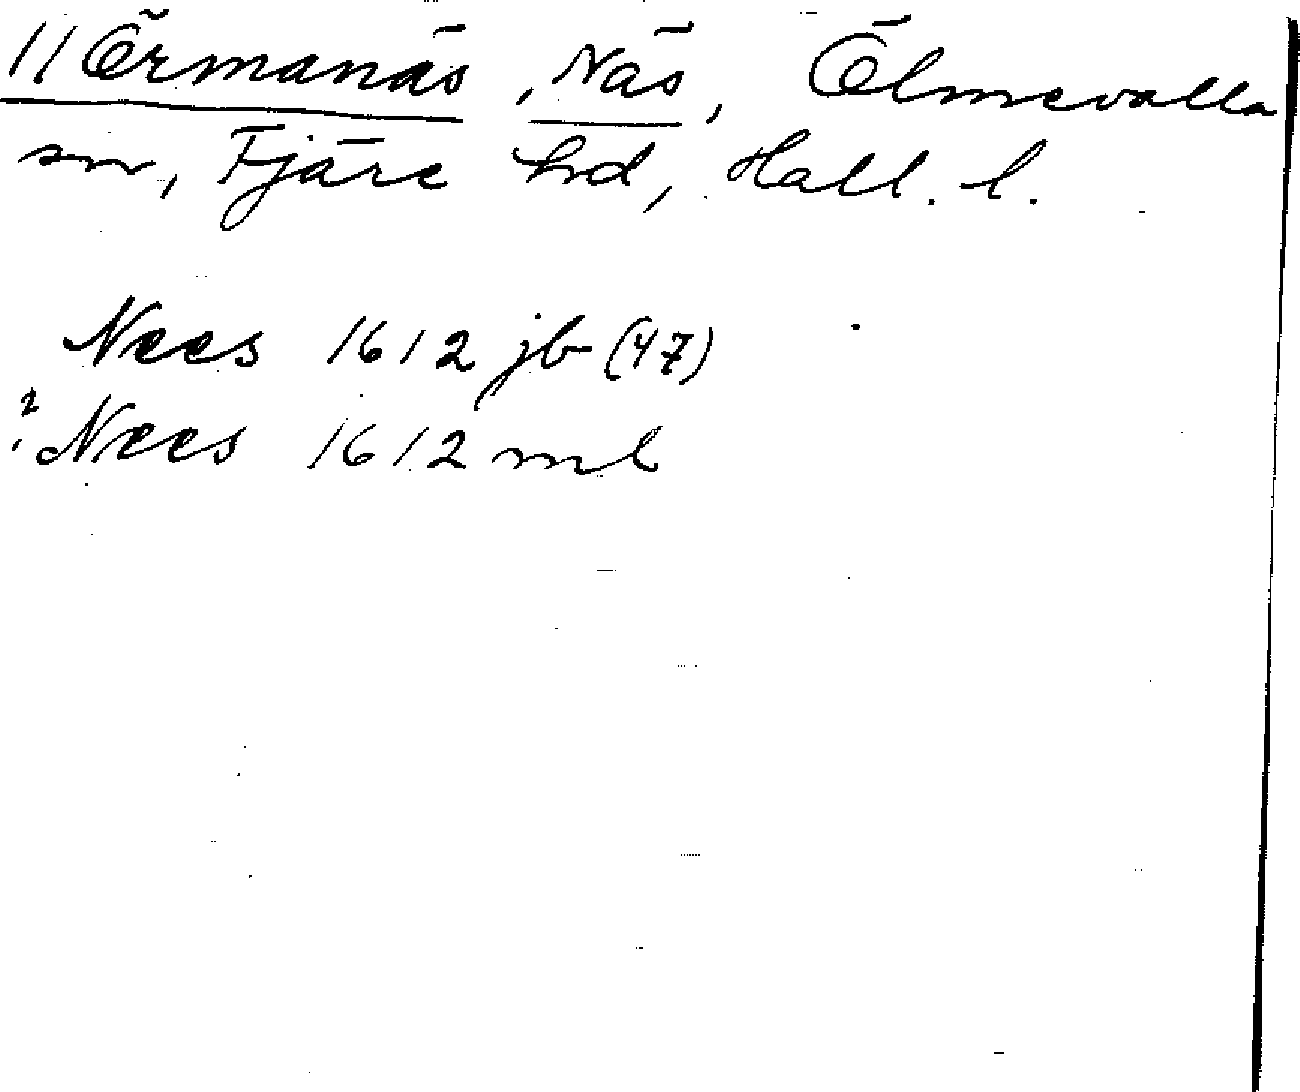 // Örmanäs, Näs, Ölmevalla
sn, Fjäre hd, Hall. l.
Nees 1612 jb (47)
? Nees 1612 ml